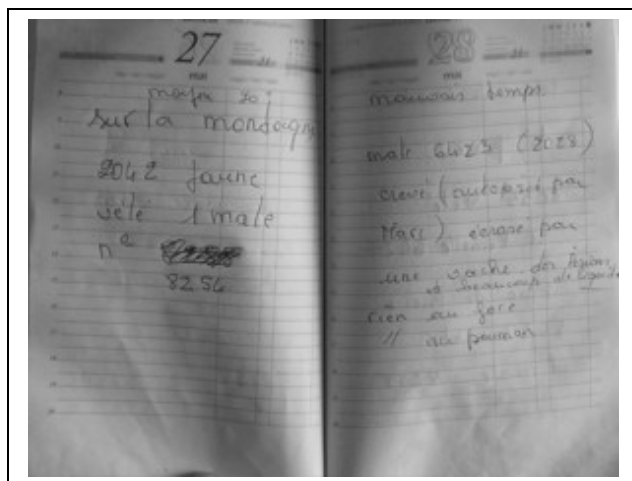 27
mai
sur la montagne
2042 jaune
vélé 1 male
n°
8254
28
mai
mauvais temps
male 6423 (2028)
crevé (autopsié par
Marc) écrasé par
une vache des lésions
et beaucoup de liquide
rien au foie
// au poumon